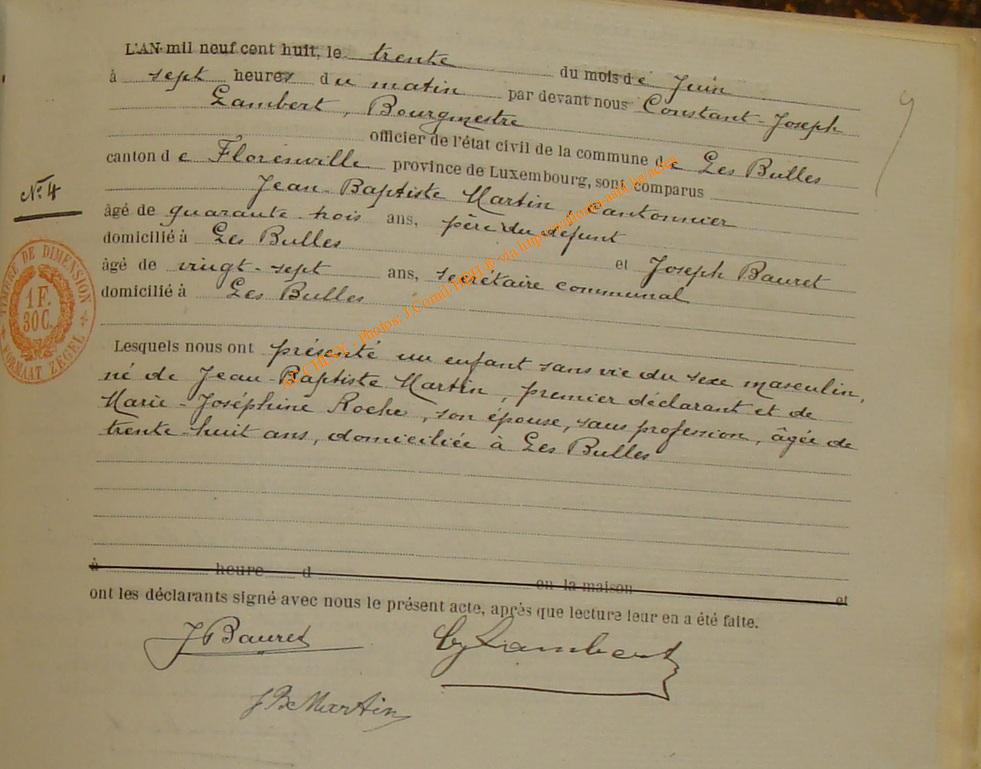 L'AN mil neuf cent huit, le trente du mois de Juin
à sept heures du matin par devant nous Constant-Joseph
Lambert, Bourgmestre
officier de l'état civil de la commune de Les Bulles
canton de Florenville province de Luxembourg, sont comparus
N° 4
Jean-Baptiste Martin, cantonnier
âgé de quarante trois ans, père du défunt
domicilié à Les Bulles et Joseph Bauret
âgé de vingt-sept ans, secrétaire communal
domicilié à Les Bulles
TIMBRE DE DIMENSION
1 F.
30 C.
FORMAAT ZEGEL
Lesquels nous ont présenté un enfant sans vie du sexe masculin,
né de Jean-Baptiste Martin, premier déclarant et de
Marie-Joséphine Roche, son épouse, sans profession, âgée de
trente-huit ans, domiciliée à Les Bulles
à heure d en la maison et
ont les déclarants signé avec nous le présent acte, après que lecture leur en a été faite.
J Bauret
Lambert
JB Martin
Photos: J.Cornil
via